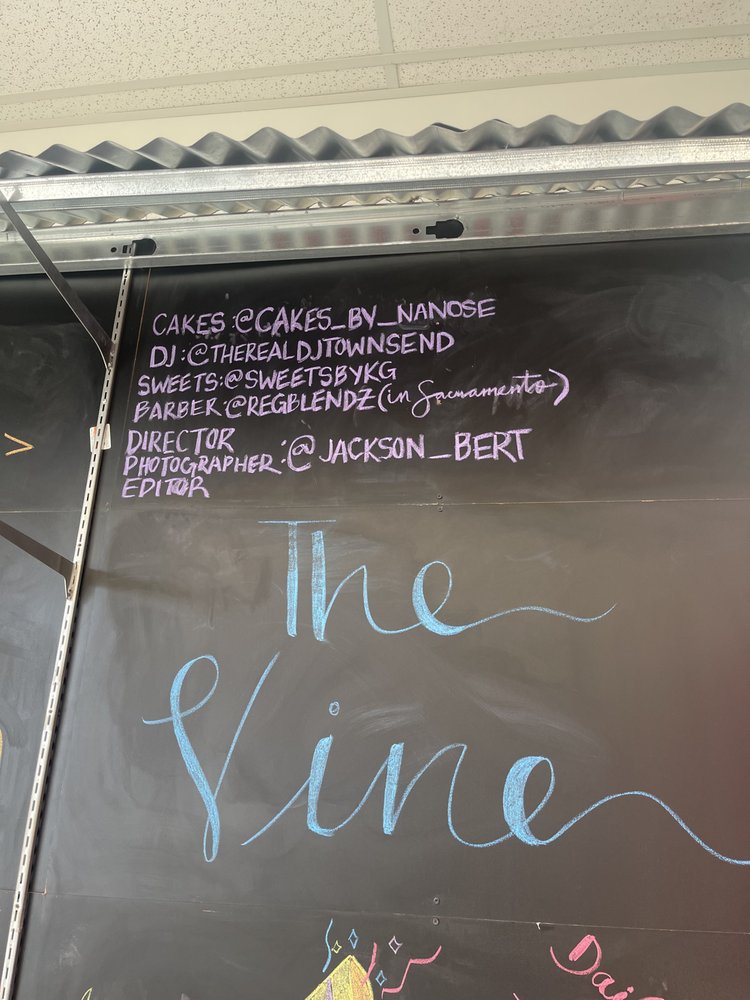 CAKES:@CAKES_BY_NANOSE
DJ:@THEREALDJTOWNSEND
SWEETS:@SWEETSBYKG
BARBER:@REGBLENDZ(in Sacramento)
DIRECTOR
PHOTOGRAPHER:@JACKSON_BERT
EDITOR
The
Vine